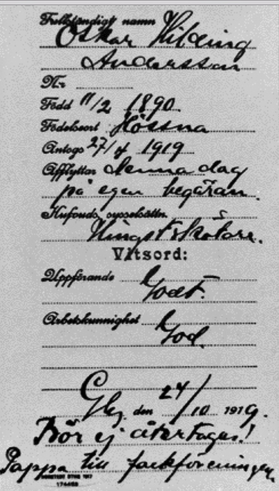 Fullständigt namn Oskar Hilding
Andersson
Nr
Född 11/2 1890
Födelseort Hössna
Antogs 27/4 1919
Afflyttar denna dag
på egen begäran.
Hufvuds. sysselsättn.
Hingstskötare.
Vitsord:
Uppförande Godt.
Arbetskunnighet God.
Gbg den 24/10 1919.
Bör ej återtagas!
Pappa till fackföreningen